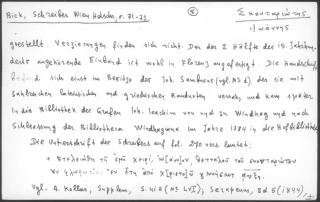 Bick, Schreiber Wien Hdschr., n. 71-73
Σκουταριώτης
Ἰωάννης
gestellt. Verzierungen finden sich nicht. Der der 2. Hälfte des 15. Jahrhun-
derts angehörende Einband ist wohl in Florenz angefertigt. Die Handschrift
befand sich einst im Besitze des Joh. Sambucus (vgl. NS 6) der sie mit
zahlreichen lateinischen und griechischen Randnoten versah, und kam später
in die Bibliothek der Grafen Joh. Joachim von und zu Windhag und nach
Schliessung der Bibliotheca Windhagiana im Jahre 1784 in die Hofbibliothek.
Die Unterschrift des Schreibers auf fol. 215v lautet:
+ ἐτελειώθη τῇ ἐμῇ χειρί, ἰω[άνν]ου, θετταλοῦ τοῦ σκουταριώτου
ἐν ἔτη ἀπὸ χ[ριστο]ῦ γεννήσεως
Vgl. A. Kollar, Supplem., S. 412 (NS LVI); Serapeum, Bd 5 (1844)